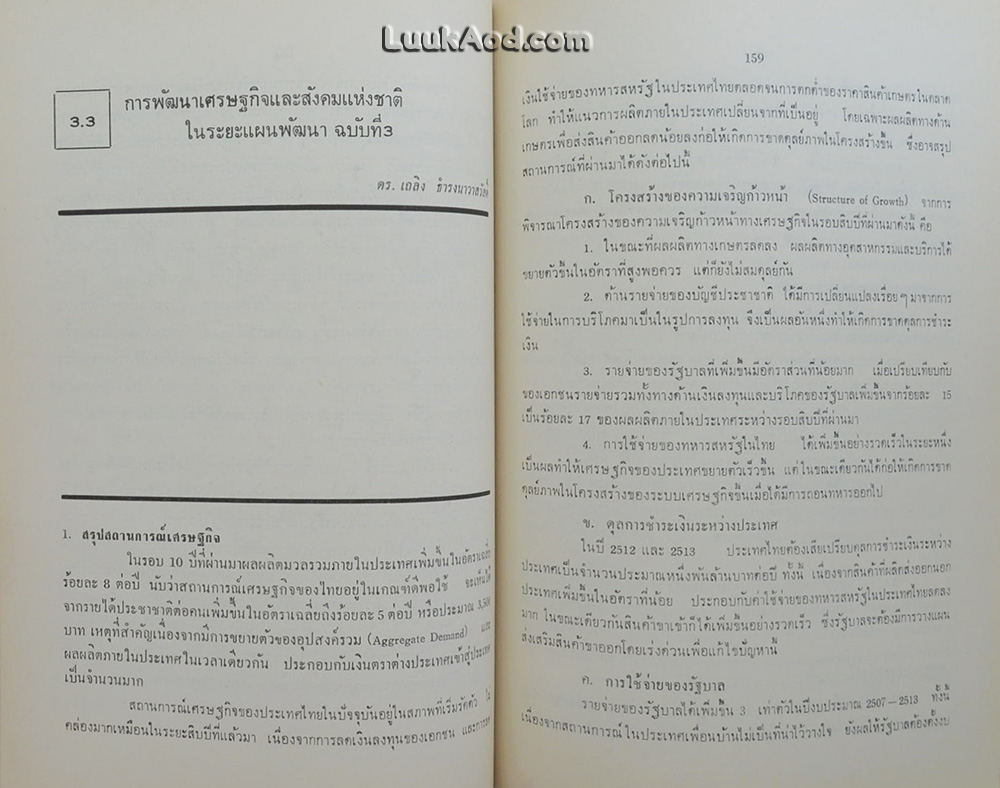 LuukAod.com
3.3
การพัฒนาเศรษฐกิจและสังคมแห่งชาติ
ในระยะแผนพัฒนา ฉบับที่3
ดร. เถลิง ธำรงนาวาสวัสดิ์
1. สรุปสถานการณ์เศรษฐกิจ
ในรอบ 10 ปีที่ผ่านมาผลผลิตมวลรวมภายในประเทศเพิ่มขึ้นในอัตราเฉลี่ย
ร้อยละ 8 ต่อปี นับว่าสถานการณ์เศรษฐกิจของไทยอยู่ในเกณฑ์ดีพอใช้ จะเห็นได้
จากรายได้ประชาชาติต่อคนเพิ่มขึ้นในอัตราเฉลี่ยถึงร้อยละ 5 ต่อปี หรือประมาณ
บาท เหตุที่สำคัญเนื่องจากมีการขยายตัวของอุปสงค์รวม (Aggregate Demand) และ
ผลผลิตภายในประเทศในเวลาเดียวกัน ประกอบกับเงินตราต่างประเทศเข้าสู่ประเทศ
เป็นจำนวนมาก
สถานการณ์เศรษฐกิจของประเทศไทยในปัจจุบันอยู่ในสภาพที่เริ่มรัดตัว ไม่
คล่องมากเหมือนในระยะสิบปีที่แล้วมา เนื่องจากการลดเงินลงทุนของเอกชน และการลด
159
เงินใช้จ่ายของทหารสหรัฐในประเทศไทยตลอดจนการตกต่ำของราคาสินค้าเกษตรในตลาด
โลก ทำให้แนวการผลิตภายในประเทศเปลี่ยนจากที่เป็นอยู่ โดยเฉพาะผลผลิตทางด้าน
เกษตรเพื่อส่งสินค้าออกลดน้อยลงก่อให้เกิดการขาดดุลย์ภาพในโครงสร้างขึ้น ซึ่งอาจสรุป
สถานการณ์ที่ผ่านมาได้ดังต่อไปนี้
ก. โครงสร้างของความเจริญก้าวหน้า (Structure of Growth) จากการ
พิจารณาโครงสร้างของความเจริญก้าวหน้าทางเศรษฐกิจในรอบสิบปีที่ผ่านมาดังนี้ คือ
1. ในขณะที่ผลผลิตทางเกษตรลดลง ผลผลิตทางอุตสาหกรรมและบริการได้
ขยายตัวขึ้นในอัตราที่สูงพอควร แต่ก็ยังไม่สมดุลย์กัน
2. ด้านรายจ่ายของบัญชีประชาชาติ ได้มีการเปลี่ยนแปลงเรื่อยๆ มาจากการ
ใช้จ่ายในการบริโภคมาเป็นในรูปการลงทุน จึงเป็นผลอันหนึ่งทำให้เกิดการขาดดุลการชำระ
เงิน
3. รายจ่ายของรัฐบาลที่เพิ่มขึ้นมีอัตราส่วนที่น้อยมาก เมื่อเปรียบเทียบกับ
ของเอกชนรายจ่ายรวมทั้งทางด้านเงินลงทุนและบริโภคของรัฐบาลเพิ่มขึ้นจากร้อยละ 15
เป็นร้อยละ 17 ของผลผลิตภายในประเทศระหว่างรอบสิบปีที่ผ่านมา
4. การใช้จ่ายของทหารสหรัฐในไทย ได้เพิ่มขึ้นอย่างรวดเร็วในระยะหนึ่ง
เป็นผลทำให้เศรษฐกิจของประเทศขยายตัวเร็วขึ้น แต่ในขณะเดียวกันได้ก่อให้เกิดการขาด
ดุลย์ภาพในโครงสร้างของระบบเศรษฐกิจขึ้นเมื่อได้มีการถอนทหารออกไป
ข. ดุลการชำระเงินระหว่างประเทศ
ในปี 2512 และ 2513 ประเทศไทยต้องเสียเปรียบดุลการชำระเงินระหว่าง
ประเทศเป็นจำนวนประมาณหนึ่งพันล้านบาทต่อปี ทั้งนี้ เนื่องจากสินค้าที่ผลิตส่งออกนอก
ประเทศเพิ่มขึ้นในอัตราที่น้อย ประกอบกับค่าใช้จ่ายของทหารสหรัฐในประเทศไทยลดลง
มาก ในขณะเดียวกันสินค้าขาเข้าก็ได้เพิ่มขึ้นอย่างรวดเร็ว ซึ่งรัฐบาลจะต้องมีการวางแผน
ส่งเสริมสินค้าขาออกโดยเร่งด่วนเพื่อแก้ไขปัญหานี้
ค. การใช้จ่ายของรัฐบาล
รายจ่ายของรัฐบาลได้เพิ่มขึ้น 3 เท่าตัวในปีงบประมาณ 2507 – 2513 ทั้งนี้
เนื่องจากสถานการณ์ในประเทศเพื่อนบ้านไม่เป็นที่น่าไว้วางใจ ยังผลให้รัฐบาลต้องตั้งงบ